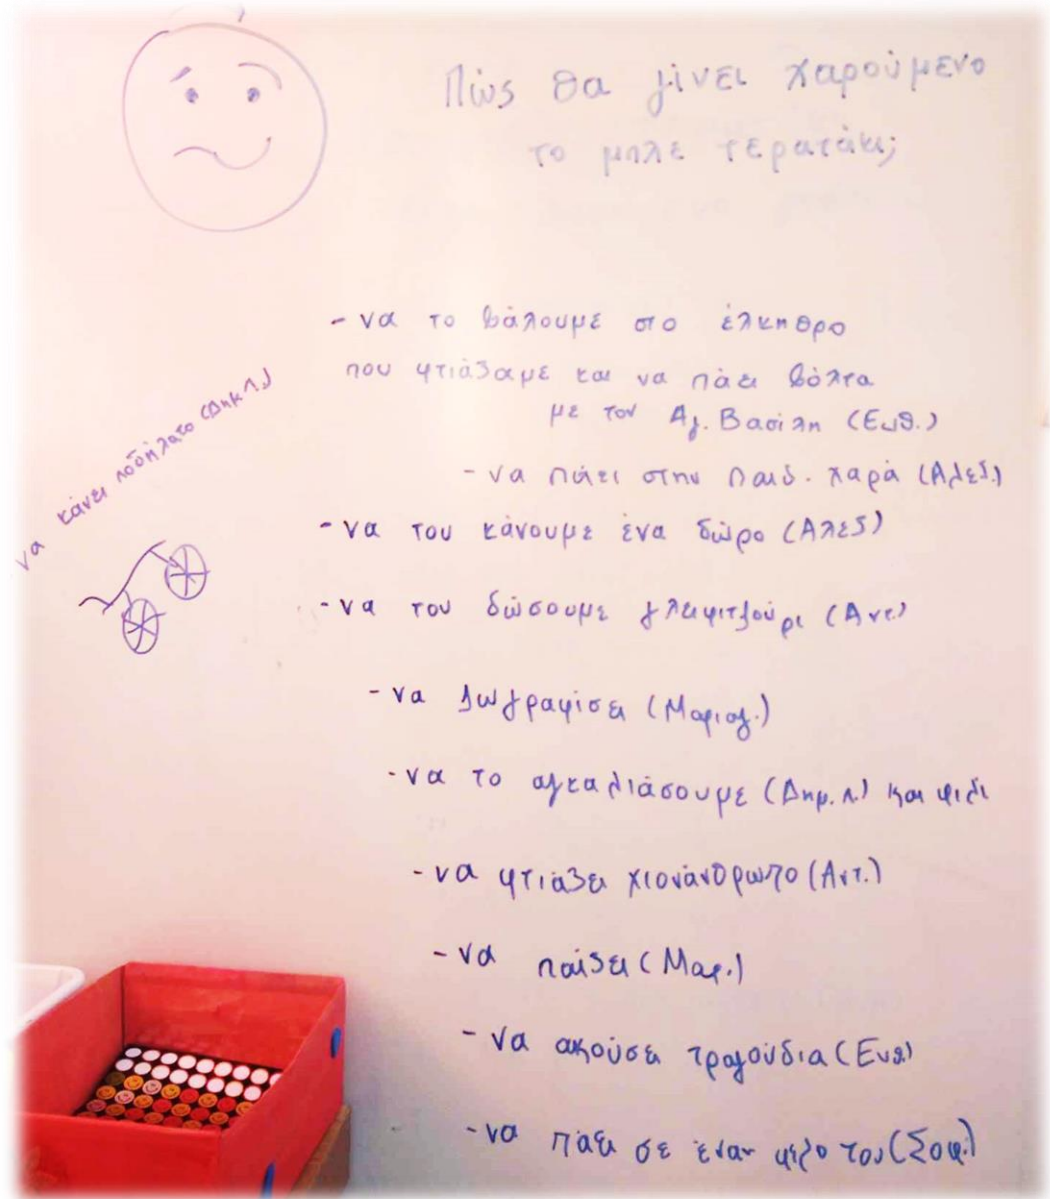 Πώς θα γίνει χαρούμενο
το μπλε τερατάκι;
- να το βάλουμε στο έλκηθρο
που φτιάξαμε και να πάει βόλτα
με τον Αγ. Βασίλη (Ευθ.)
- να πάει στην παιδ. χαρά (Αλεξ.)
να κάνει ποδήλατο (Δημ Λ.)
- να του κάνουμε ένα δώρο (Αλεξ)
- να του δώσουμε γλειφιτζούρι (Αντ.)
- να ζωγραφίσει (Μαριαγ.)
- να το αγκαλιάσουμε (Δημ. Λ.) και φιλί
- να φτιάξει χιονάνθρωπο (Αντ.)
- να παίξει (Μαρ.)
- να ακούσει τραγούδια (Ευθ.)
- να πάει σε έναν φίλο του (Σοφ.)